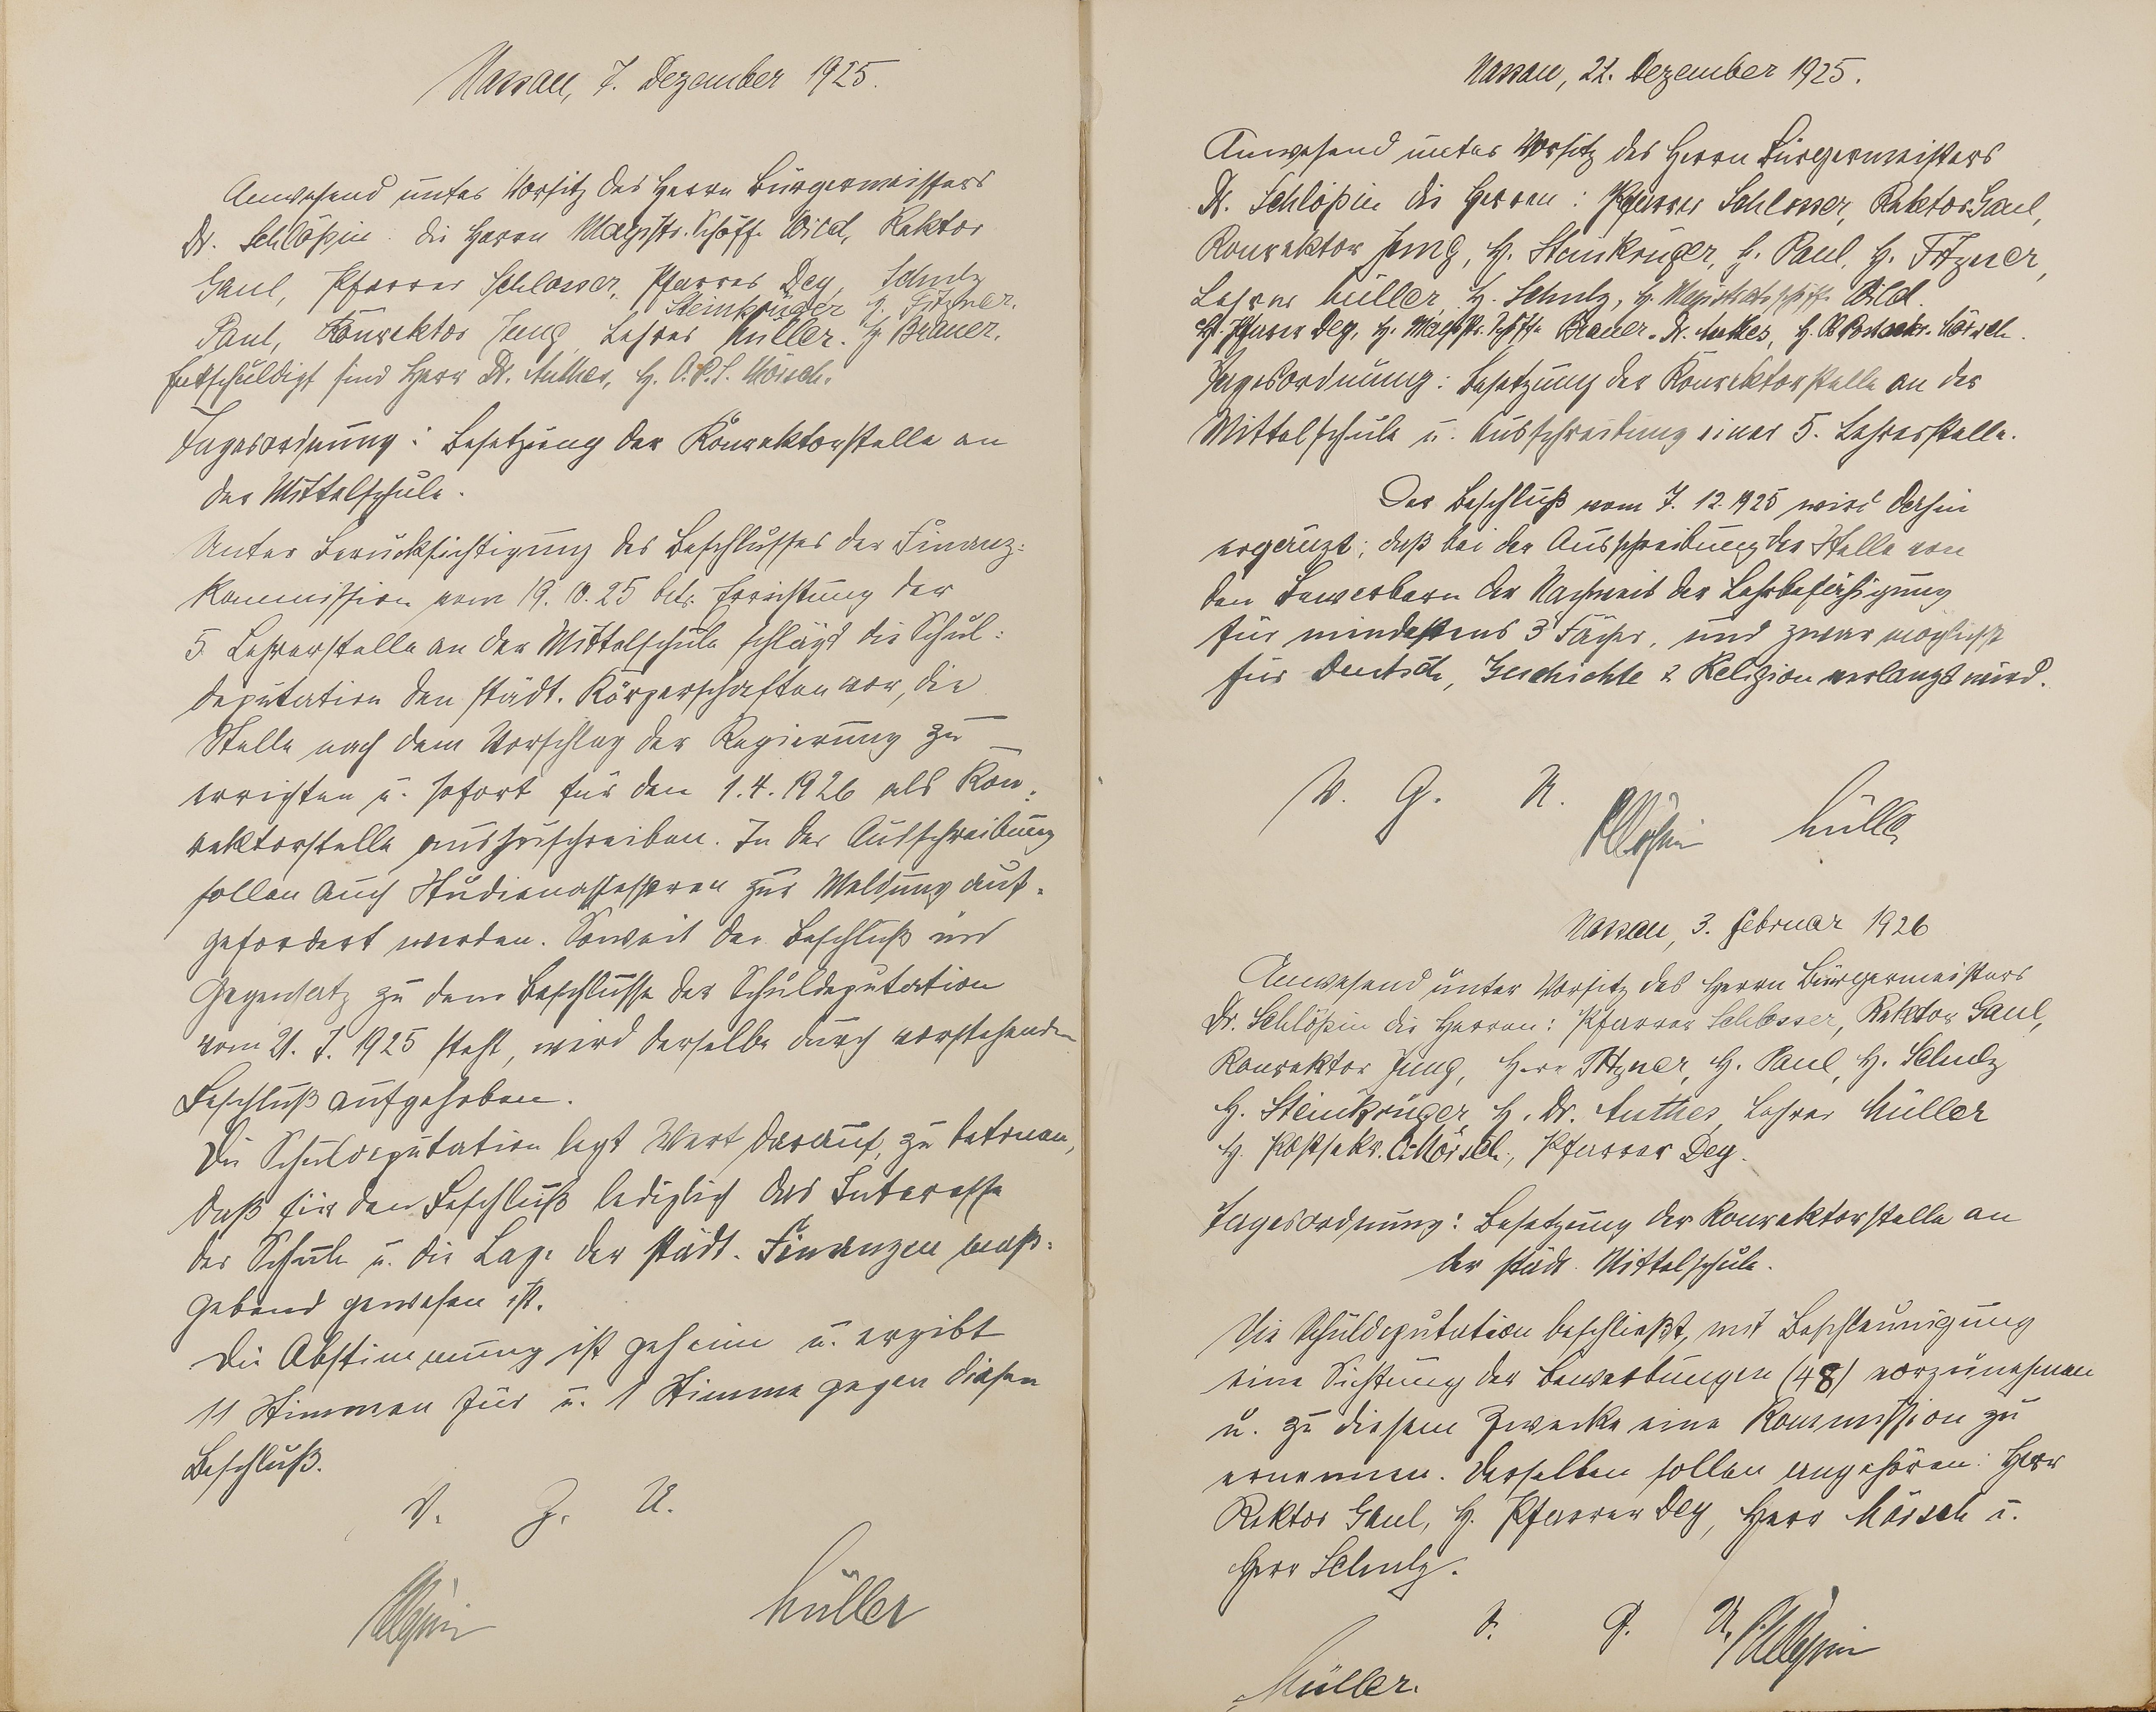 Nassau, 7. Dezember 1925.
Anwesend unter Vorsitz des Herrn Bürgermeisters
Dr. Schlößin die Herren Magistr. Schöffe Wild, Rektor
Gaul, Pfarrer Schlosser, Pfarrer Dey, Schulz
Steinkrüger H. Fitzner.
Paul, Konrektor Jung, Lehrer Müller. H. Brauer.
Entschuldigt sind Herr Dr. Anthes, H. O.P.S. Mörsch.
Tagesordnung: Besetzung der Konrektorstelle an
der Mittelschule.
Unter Berücksichtigung des Beschlusses der Finanz-
kommission vom 19.10.25 betr. Errichtung der
5. Lehrerstelle an der Mittelschule schlägt die Schul-
deputation den städt. Körperschaften vor, die
Stelle nach dem Vorschlag der Regierung zu
errichten u. sofort für den 1.4.1926 als Kon-
rektorstelle auszuschreiben. In der Ausschreibung
sollen auch Studienassessoren zur Meldung auf-
gefordert werden. Soweit der Beschluß im
Gegensatz zu dem Beschlusse der Schuldeputation
vom 21. 7. 1925 steht, wird derselbe durch vorstehenden
Beschluß aufgehoben.
Die Schuldeputation legt Wert darauf, zu betonen,
daß für den Beschluß lediglich das Interesse
der Schule u. die Lage der städt. Finanzen maß-
gebend gewesen ist.
Die Abstimmung ist geheim u. ergibt
11 Stimmen für u. 1 Stimme gegen diesen
Beschluß.
V. G. U.
Schlößin Müller
Nassau, 22. Dezember 1925.
Anwesend unter Vorsitz des Herrn Bürgermeisters
Dr. Schlößin die Herren: Pfarrer Schlosser, Rektor Gaul,
Konrektor Jung, H. Steinkrüger, H. Paul, H. Fitzner,
Lehrer Müller, H. Schulz, H. Magistratsschöffe Wild.
H. Pfarrer Dey, H. Magistr. Schöffe Brauer. Dr. Anthes, H. O. Postsekr. Mörsch.
Tagesordnung: Besetzung der Konrektorstelle an der
Mittelschule u. Ausschreibung einer 5. Lehrerstelle.
Der Beschluß vom 7.12.1925 wird dahin
ergänzt, daß bei der Ausschreibung der Stelle von
den Bewerbern der Nachweis der Lehrbefähigung
für mindestens 3 Fächer, und zwar möglichst
für Deutsch, Geschichte & Religion verlangt wird.
V. G. U.
Schlößin Müller
Nassau, 3. Februar 1926
Anwesend unter Vorsitz des Herrn Bürgermeisters
Dr. Schlößin die Herren: Pfarrer Schlosser, Rektor Gaul,
Konrektor Jung, Herr Fitzner, H. Paul, H. Schulz
H. Steinkrüger, H. Dr. Anthes, Lehrer Müller
H. Postsekr. O. Mörsch, Pfarrer Dey.
Tagesordnung: Besetzung der Konrektorstelle an
der städt. Mittelschule.
Die Schuldeputation beschließt, mit Beschleunigung
eine Sichtung der Bewerbungen (48) vorzunehmen
u. zu diesem Zwecke eine Kommission zu
ernennen. Derselben sollen angehören: Herr
Rektor Gaul, H. Pfarrer Dey, Herr Mörsch u.
Herr Schulz.
V. G. U.
Schlößin
Müller.